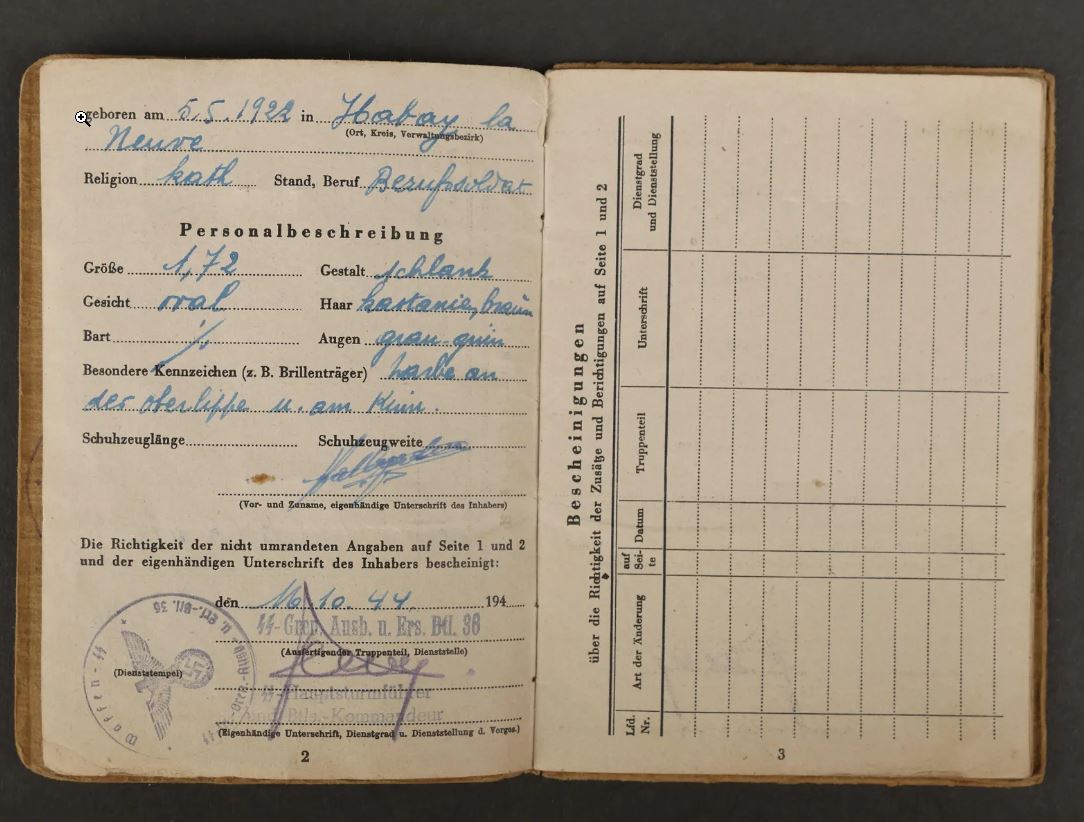 geboren am 5.5.1922 in Habay la
(Ort, Kreis, Verwaltungsbezirk)
Neuve
Religion kath Stand, Beruf Berufssoldat
Personalbeschreibung
Größe 1,72 Gestalt schlank
Gesicht oval Haar kastanie, braun
Bart ./. Augen grau-grün
Besondere Kennzeichen (z. B. Brillenträger) Narbe an
der oberlippe u. am Kinn.
Schuhzeuglänge Schuhzeugweite
(Vor- und Zuname, eigenhändige Unterschrift des Inhabers)
Die Richtigkeit der nicht umrandeten Angaben auf Seite 1 und 2
und der eigenhändigen Unterschrift des Inhabers bescheinigt:
den 16.10.44. 194
SS-Gren. Ausb. u. Ers. Btl. 36
(Ausfertigender Truppenteil, Dienststelle)
(Dienststempel)
Waffen-SS
SS-Gren.-Ausb. u. Ers.-Btl. 36
SS-Hauptsturmführer
und Btls.-Kommandeur
(Eigenhändige Unterschrift, Dienstgrad u. Dienststellung d. Vorges.)
2
Bescheinigungen
über die Richtigkeit der Zusätze und Berichtigungen auf Seite 1 und 2
Lfd. Nr.
Art der Änderung
auf Sei-te
Datum
Truppenteil
Unterschrift
Dienstgrad und Dienststellung
3